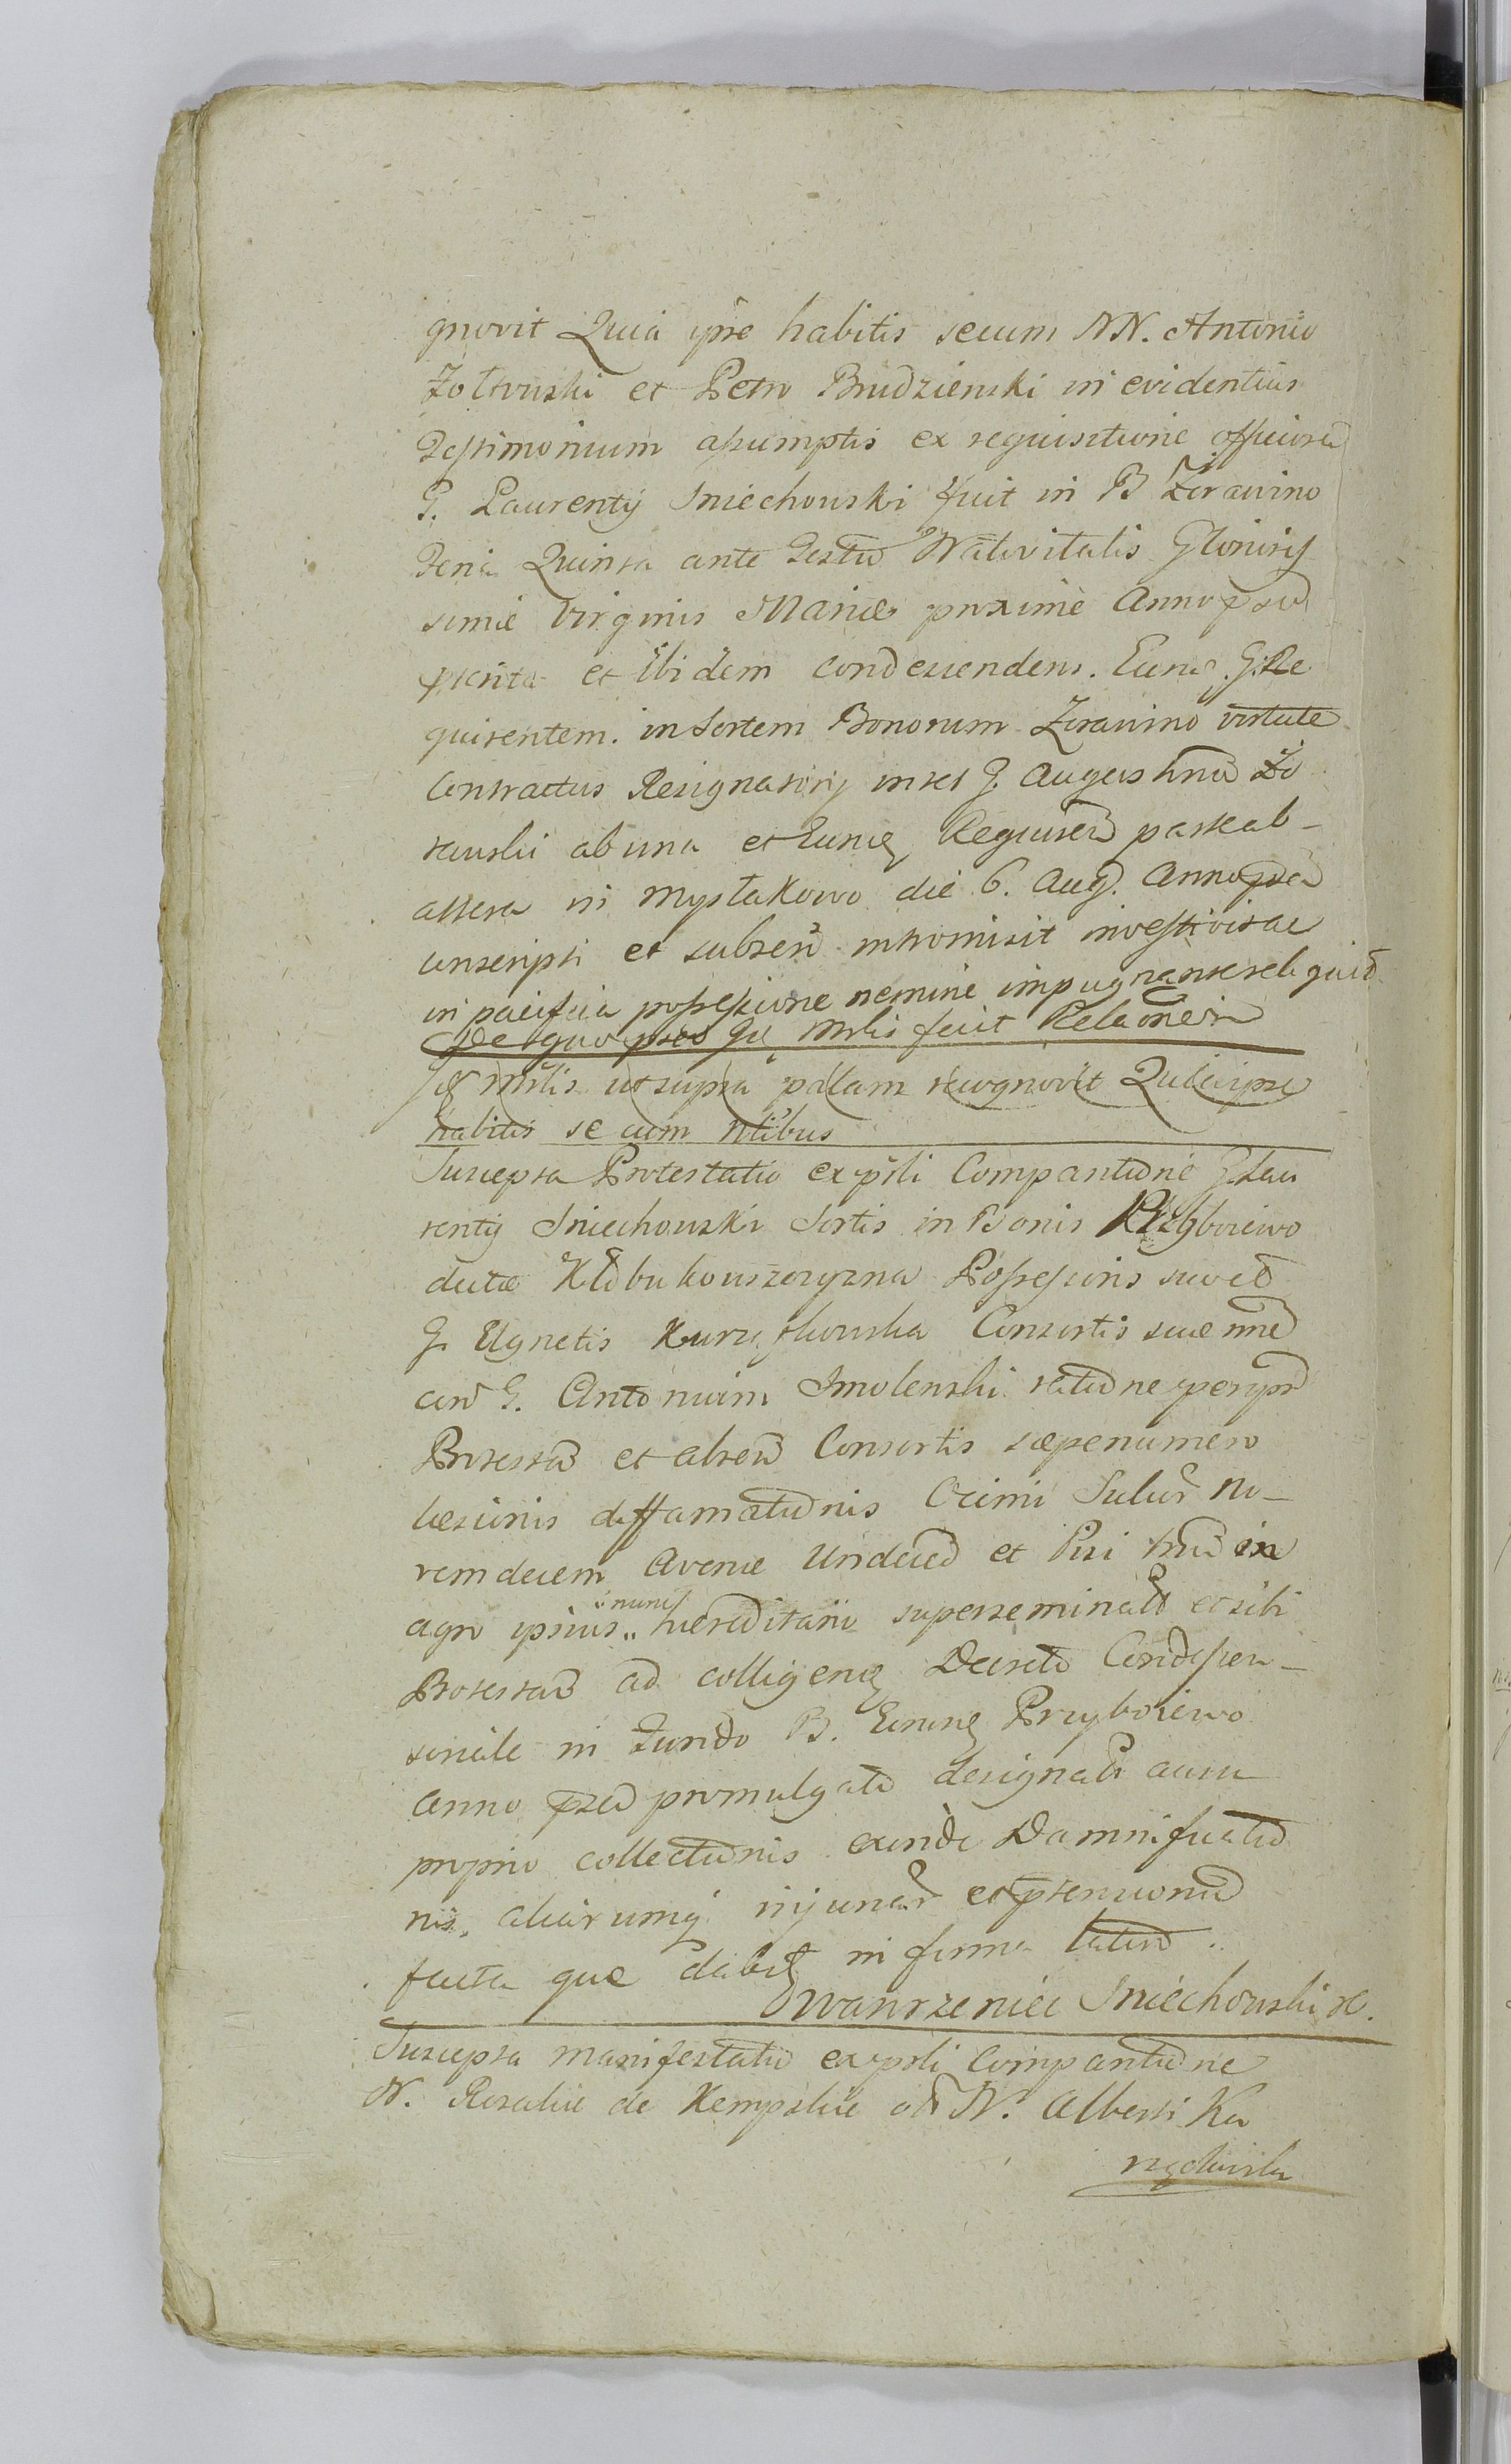 gnovit Quia ipse habitis secum NN. Antonio
Zołtowski et Petro Brudzienski in evidentius
Testimonium assumptis ex requisitione officiosa
G. Laurentij Sniechowski fuit in B Zórawino
Feria Quinta ante Festū Nativitatis Gloriosis
simæ Virginis Mariæ proxime Anno
et Ibidem condescendens. Eund. G. Re
quirentem. in Sortem Bonorum Zórawino virtute
Contractus Resignatorij inter G. Augustinū Żó
rawski ab una et Eund Requiren parte ab
altera in Mystkowo die 6. Aug. Anno
conscripti et subscrī intromisit investivitque
in pacifica possessione nemine impugnante reliquit
De quo præs Gñ Mrlis fecit Relaōnem
Idē Mrlis ut supra palam recognovit Quia ipse
habitis secum Nlibus
Suscepta Protestatio ex psli Comparitione G. Lau
rentij Sniechowski Sortis in Bonis Przyborewo
dictæ Kłobukowszczyzna Possessoris suo et
G. Agnetis Kurzątkowska Consortis suæ nnē
con G. Antonium Smolenski ratione per ips
Protestān et absen Consortis sæpenumero
læsionis diffamationis Ocimi Sulcor No-
vemdecem Avenæ Undeced et Pisi trium in
agro ipsius hæreditario superseminatæ et sibi
Protestan ad colligend Decreto Condescen-
soriale in Fundo B. Eorund Przyborewo
Anno promulgato designati ausu
proprio collectionis exinde Damnificatio
nis, aliarumq injuriar et prætensionū
facta quæ dabit in forma latior.
Wawrzeniec Sniechowski
Suscepta Manifestatio ex psli Comparitione
N. Rosaliæ de Kempskie olī N. Alberti Ka